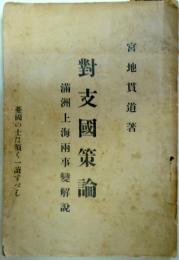 宮地貫道著
對支國策論
滿洲上海兩事變解說
憂國の士は須く一讀すべし